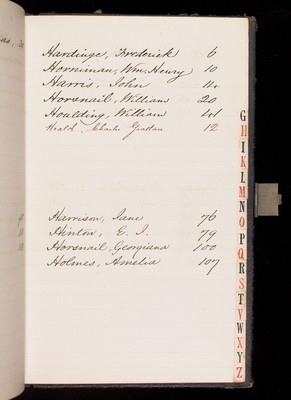 Hardinge, Frederick 6
Horniman, Wm. Henry 10
Harris, John 14
Horsnail, William 20
Houlding, William 41
Heald, Charles Grattan 12
Harrison, Jane 76
Hinton, E. J. 79
Horsnail, Georgiana 100
Holmes, Amelia 107
G
H
I
K
L
M
N
O
P
Q
R
S
T
V
W
X
Y
Z